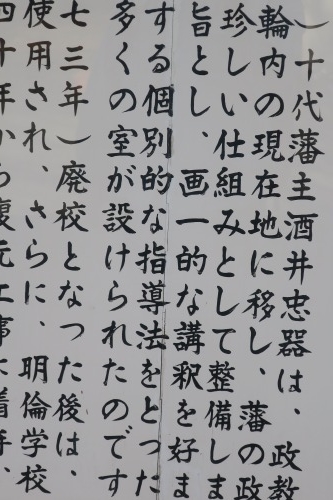 十代藩主酒井忠器は、政教
輪内の現在地に移し、藩の政
珍しい仕組みとして整備しま
旨とし、画一的な講釈を好ま
する個別的な指導法をとった
多くの室が設けられたのです
七三年）廃校となった後は、
使用され、さらに、明倫学校
四十年から復元工事に着手、